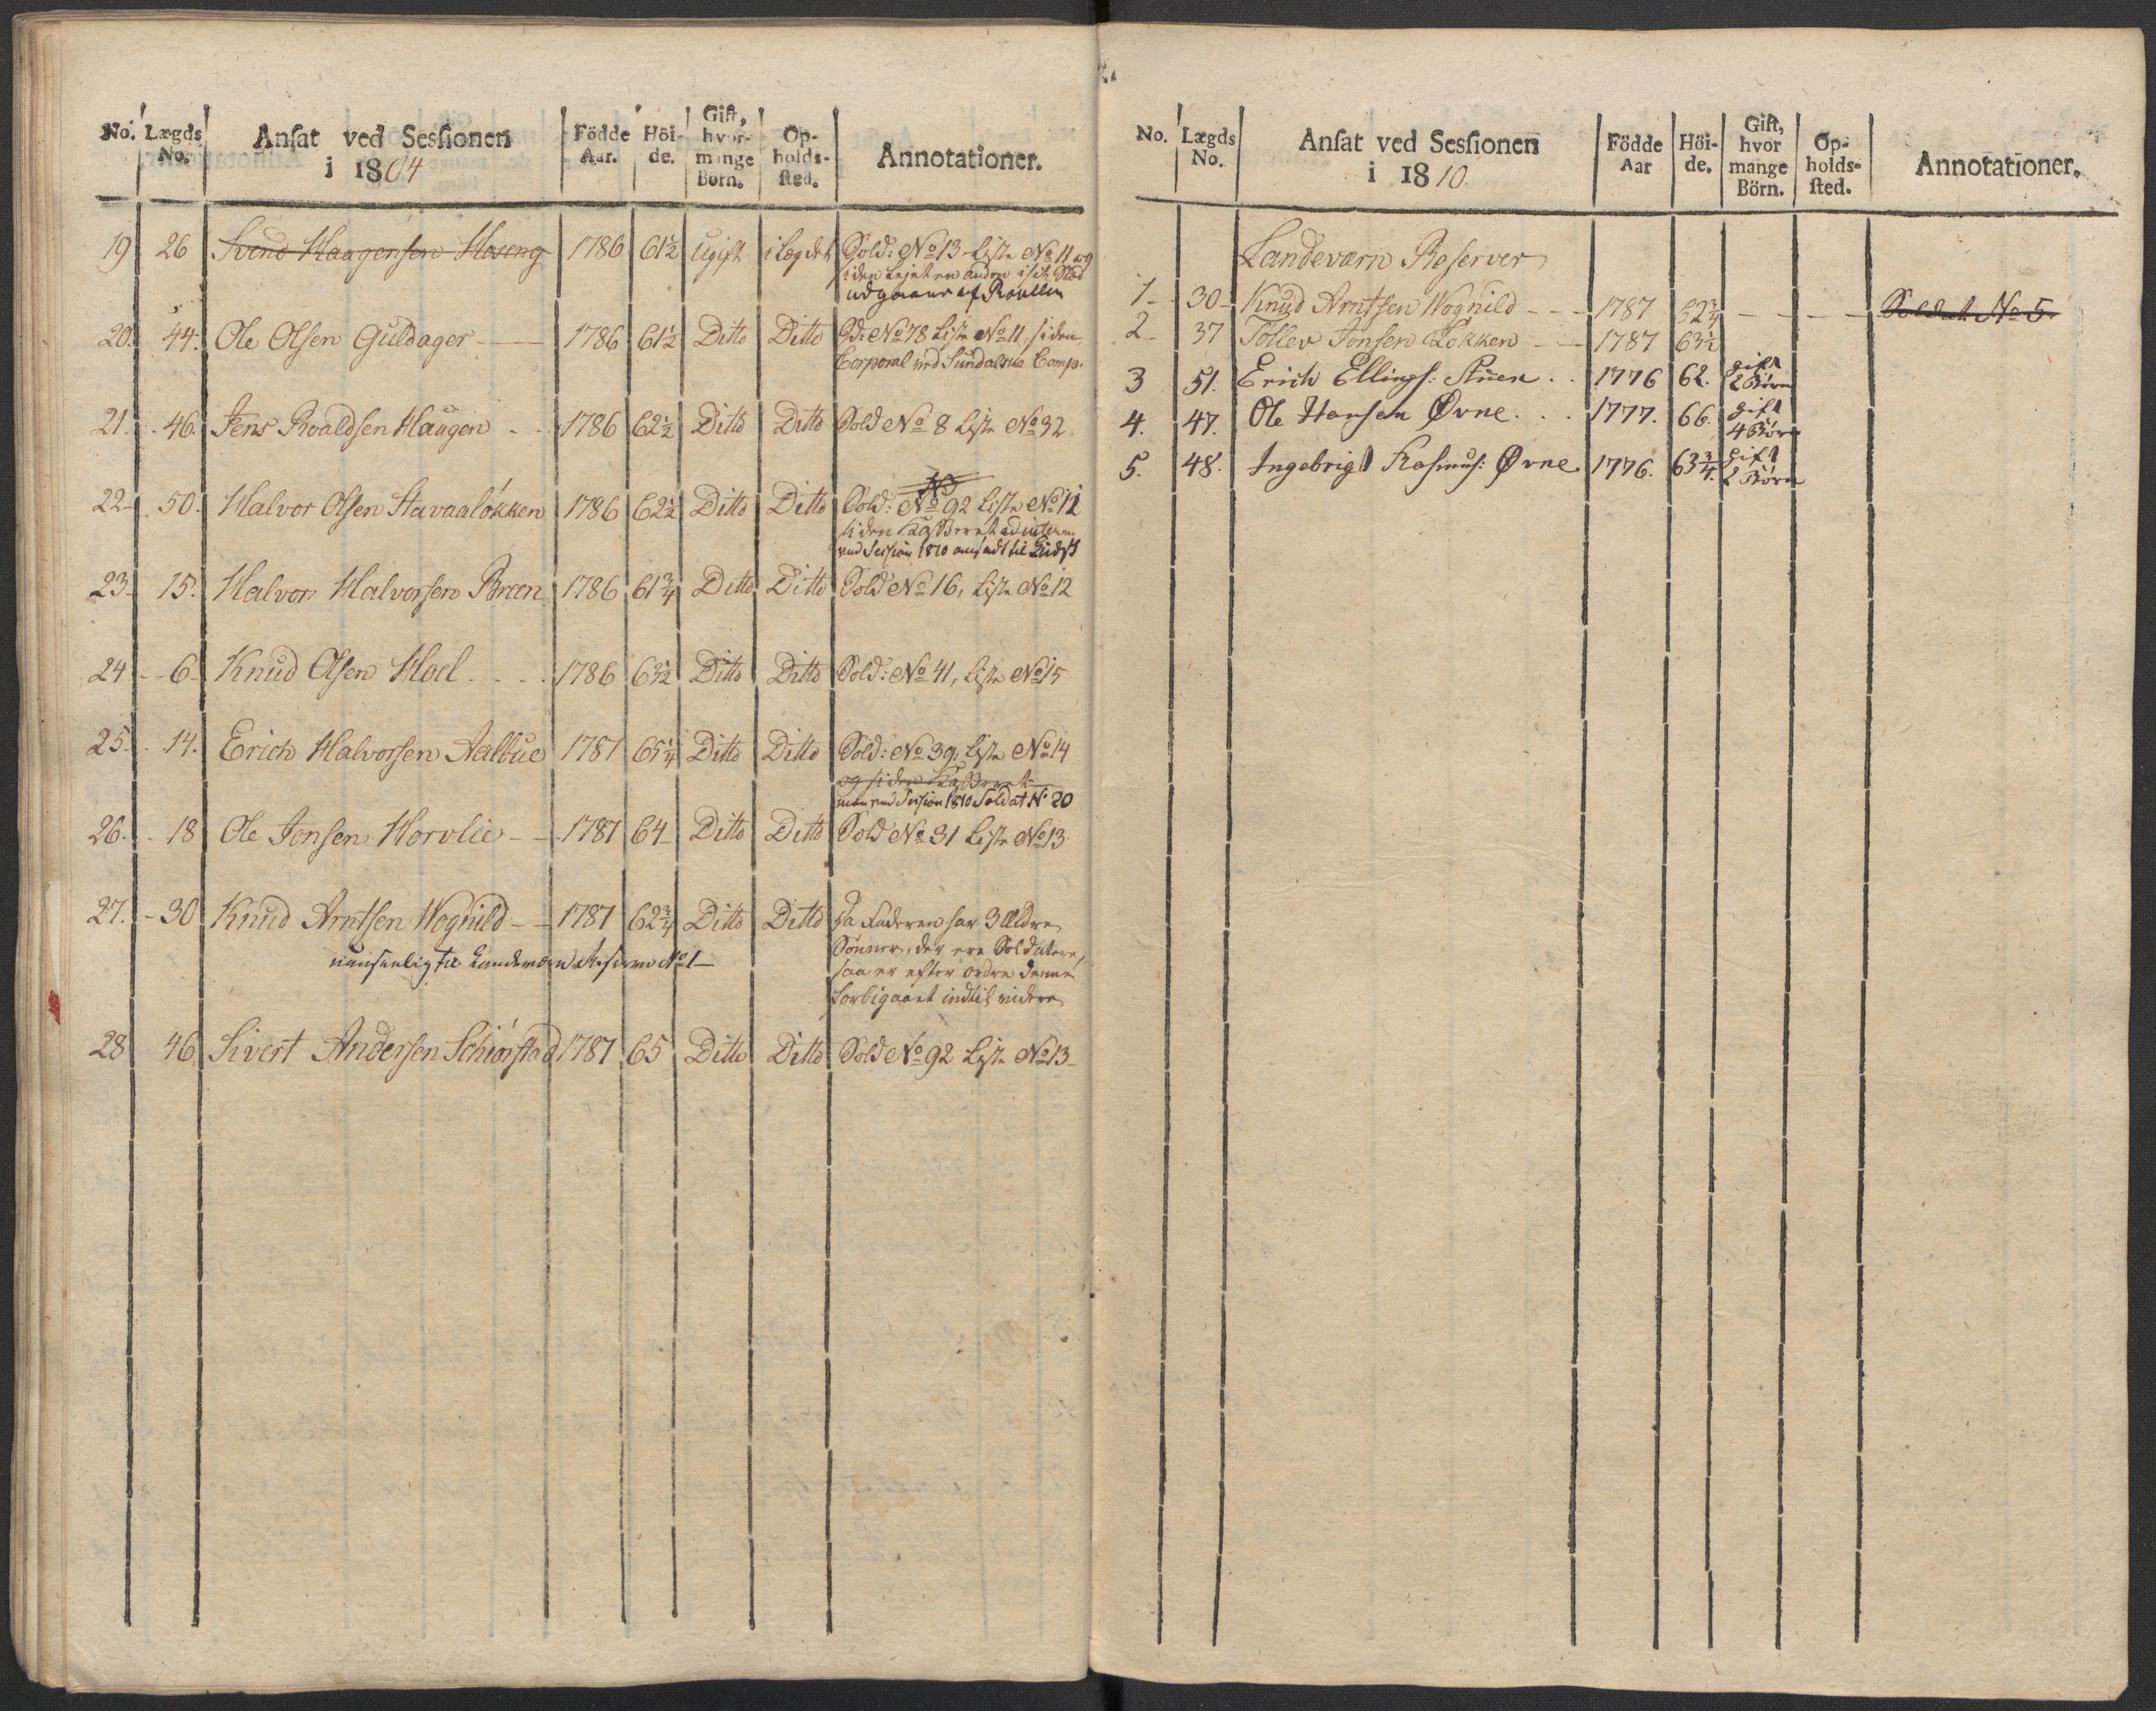 No. Lægds No. Ansat ved Sessionen i 1804 Födde Aar. Höi-de. Gift, hvor-mange Börn. Op-holds-sted. Annotationer.
19 26 Svend Haagensen Hoseng 1786 61½ Ugift i Lægdet Sold: No 13 Liste No 11 og
siden Lejet en anden i sit Sted
udgaaer af Roullen
20. 44. Ole Olsen Guldager 1786 61½ Ditto Ditto Sd: No 78 Liste No 11, siden
Corporal ved Sundalske Comp.
21. 46. Jens Roaldsen Haugen 1786 62½ Ditto Ditto Sold No 8 Liste No 32.
22. 50. Halvor Olsen Stavaaløkken 1786 62½ Ditto Ditto Sold: No 92 Liste No 12
siden Casseret ad interim
ved Session 1810 ansadt til
23. 15. Halvor Halvorsen Breen 1786 61¾ Ditto Ditto Sold No 16, Liste No 12
24 6 Knud Olsen Hoel 1786 63½ Ditto Ditto Sold: No 41, Liste No 15
25. 14. Erich Halvorsen Aalbue 1787 65¼ Ditto Ditto Sold: No 39, Liste No 14
og siden Casseret
men ved Session 1810 Soldat No 20
26. 18 Ole Jonsen Horvlie 1787 64 Ditto Ditto Sold No 31 Liste No 13
27. 30 Knud Arntsen Wognild 1787 62¾ Ditto Ditto Da Faderen har 3 Ældre
Sønner, der ere Soldatere,
saa er efter ordre denne
forbigaaet indtil videre
uanseelig til Landeværn Reserve No 1
28 46. Sivert Andersen Schiørstad 1787 65 Ditto Ditto Sold No 92 Liste No 13
No. Lægds No. Ansat ved Sessionen i 1810 Födde Aar Höi-de. Gift, hvor mange Börn. Op-holds-sted. Annotationer.
Landeværn Reserver
1 30 Knud Arntsen Wognild 1787 62¾ Soldat No 5.
2 37 Tollev Jonsen Løkken 1787 63½
3 51. Erich Ellings: Stuen 1776 62. gift 2 Børn
4. 47. Ole Hansen Øvne 1777. 66. gift 4 Børn
5. 48. Ingebrigt Rasmus: Øvne 1776. 63¾. gift 2 Børn